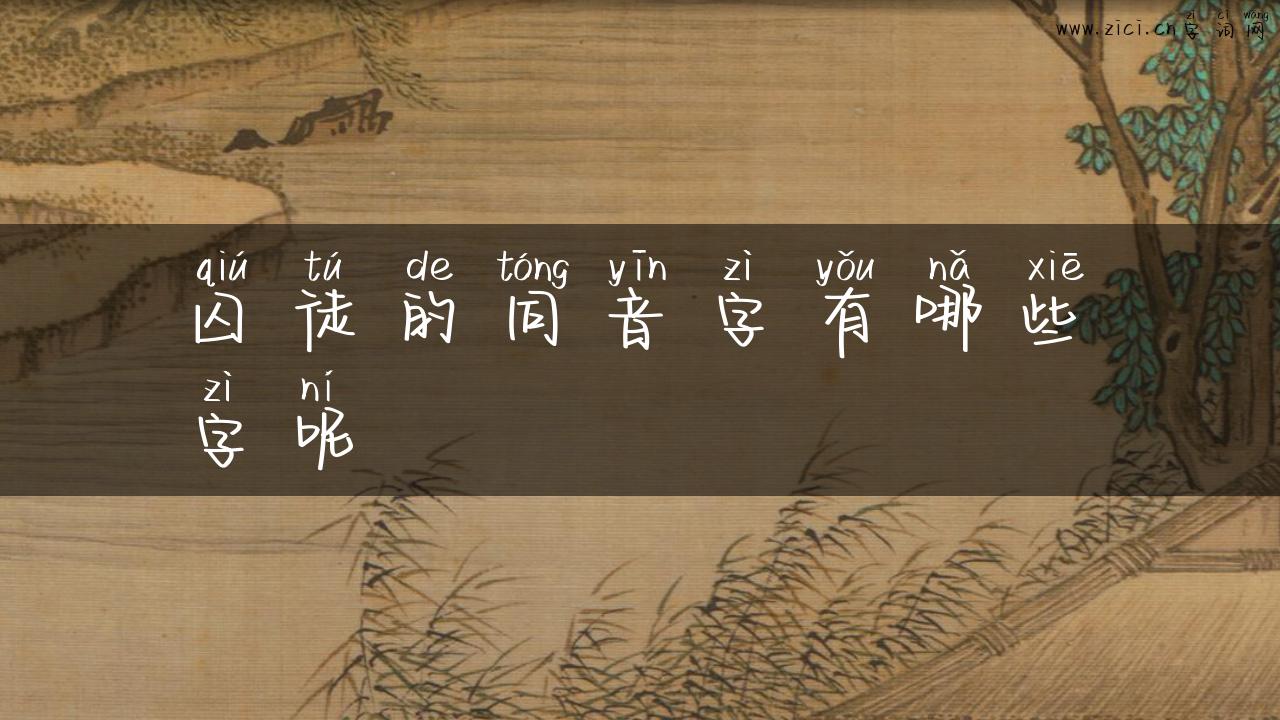 zì cí wǎng
www.zici.cn字词网
qiú tú de tóng yīn zì yǒu nǎ xiē
囚徒的同音字有哪些
zì ní
字呢